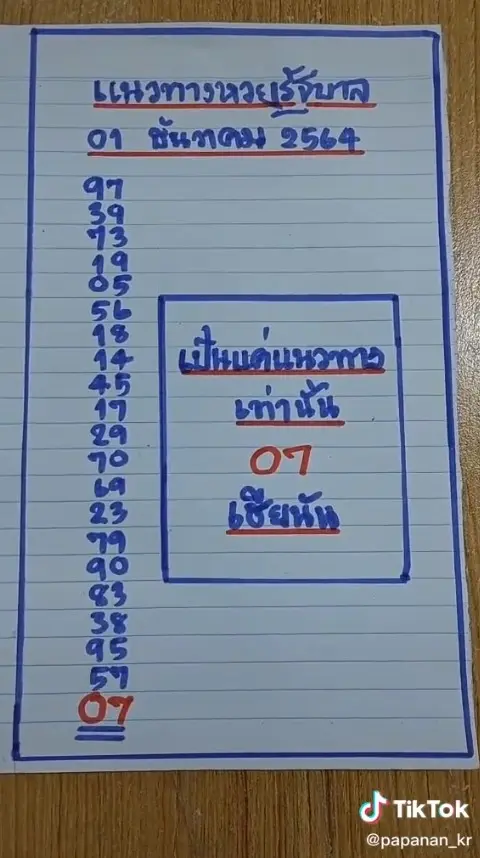 แนวทางหวยรัฐบาล
01 ธันวาคม 2564
97
39
73
19
05
56
18
14
45
17
29
70
69
23
79
90
83
38
95
57
07
เป็นแค่แนวทาง
เท่านั้น
07
เซียนัน
TikTok
@papanan_kr